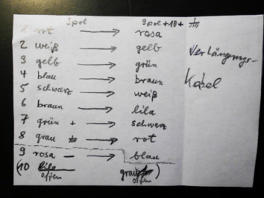 Spol Spol+18+
1 rot → rosa
2 weiß → gelb
3 gelb → grün
4 blau → braun
5 schwarz → weiß
6 braun → lila
7 grün + → schwarz
8 grau → rot
9 rosa – → blau
(10 lila grau)
offen offen
Verlängerungs-
Kabel